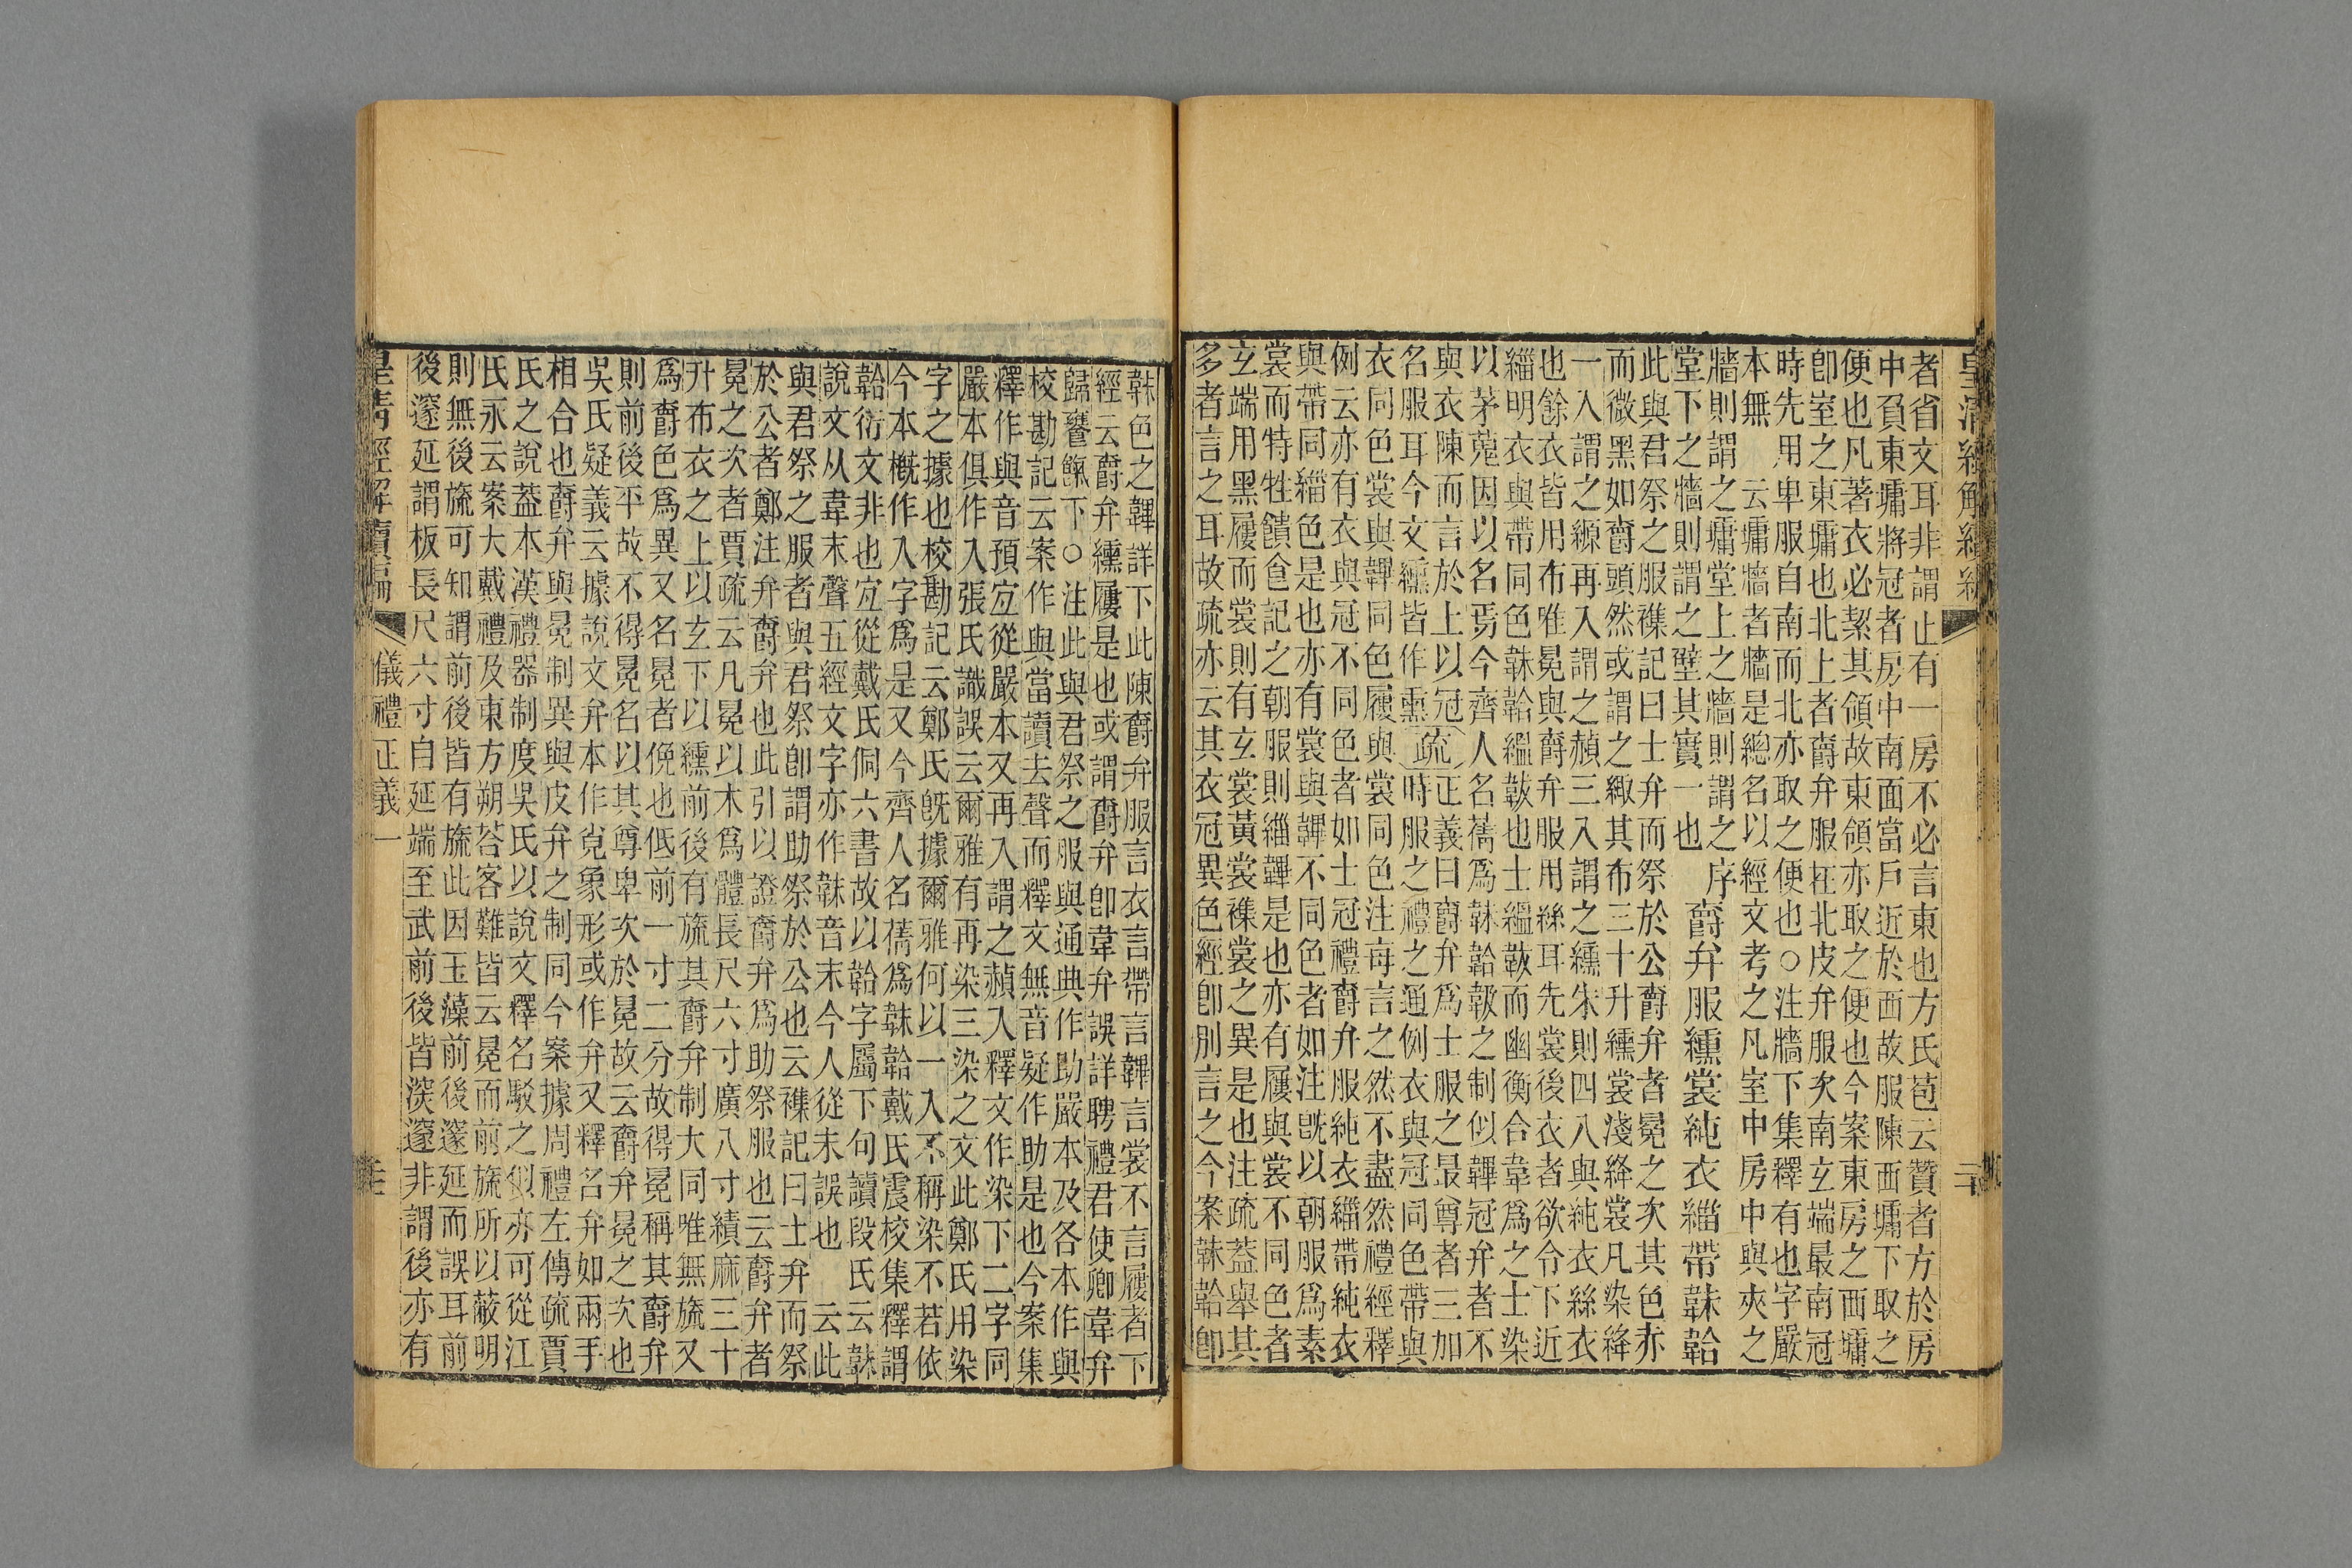 皇清經解續編
者省文耳非謂止有一房不必言東也方氏苞云贊者方於房
中負東墉將冠者房中南面當戶近於西故服陳西墉下取之
便也凡著衣必絜其領故東領亦取之便也今案東房之西墉
卽室之東墉也北上者爵弁服在北皮弁服次南玄端最南冠
時先用卑服自南而北亦取之便也○注牆下集釋有也字嚴
本無 云墉牆者牆是總名以經文考之凡室中房中與夾之
牆則謂之墉堂上之牆則謂之序
堂下之牆則謂之壁其實一也
爵弁服纁裳純衣緇帶韎韐
此與君祭之服襍記曰士弁而祭於公爵弁者冕之次其色亦
而微黑如爵頭然或謂之緅其布三十升纁裳淺絳裳凡染絳
一入謂之縓再入謂之赬三入謂之纁朱則四入與純衣絲衣
也餘衣皆用布唯冕與爵弁服用絲耳先裳後衣者欲令下近
緇明衣與帶同色韎韐縕韍也士縕韍而幽衡合韋爲之士染
以茅蒐因以名焉今齊人名蒨爲韎韐韍之制似韠冠弁者不
與衣陳而言於上以冠
名服耳今文纁皆作熏
疏
正義曰爵弁爲士服之最尊者三加
時服之禮之通例衣與冠同色帶與
衣同色裳與韠同色履與裳同色注每言之然不盡然禮經釋
例云亦有衣與冠不同色者如士冠禮爵弁服純衣緇帶純衣
與帶同緇色是也亦有裳與韠不同色者如注旣以朝服爲素
裳而特牲饋食記之朝服則緇韠是也亦有屨與裳不同色者
玄端用黑屨而裳則有玄裳黃裳襍裳之異是也注疏蓋舉其
多者言之耳故疏亦云其衣冠異色經卽別言之今案韎韐卽
韎色之韠詳下此陳爵弁服言衣言帶言韠言裳不言履者下
經云爵弁纁屨是也或謂爵弁卽韋弁誤詳聘禮君使卿韋弁
歸饔餼下○注此與君祭之服與通典作助嚴本及各本作與
校勘記云案作與當讀去聲而釋文無音疑作助是也今案集
釋作與音預宐從嚴本又再入謂之赬入釋文作染下二字同
嚴本俱作入張氏識誤云爾雅有再染三染之文此鄭氏用染
字之據也校勘記云鄭氏旣據爾雅何以一入不稱染不若依
今本槪作入字爲是又今齊人名蒨爲韎韐戴氏震校集釋謂
韐衍文非也宐從戴氏侗六書故以韐字屬下句讀段氏云韎
說文从韋末聲五經文字亦作韎音末今人從未誤也 云此
與君祭之服者與君祭卽謂助祭於公也云襍記曰士弁而祭
於公者鄭注弁爵弁也此引以證爵弁爲助祭服也云爵弁者
冕之次者賈疏云凡冕以木爲體長尺六寸廣八寸績麻三十
升布衣之上以玄下以纁前後有旒其爵弁制大同唯無旒又
爲爵色爲異又名冕者俛也低前一寸二分故得冕稱其爵弁
則前後平故不得冕名以其尊卑次於冕故云爵弁冕之次也
吳氏疑義云據說文弁本作㝸象形或作弁又釋名弁如兩手
相合也爵弁與冕制異與皮弁之制同今案據周禮左傳疏賈
氏之說蓋本漢禮器制度吳氏以說文釋名駁之似亦可從江
氏永云案大戴禮及東方朔荅客難皆云冕而前旒所以蔽明
則無後旒可知謂前後皆有旒此因玉藻前後邃延而誤耳前
後邃延謂板長尺六寸自延端至武前後皆深邃非謂後亦有
皇淸經解續編
儀禮正義一